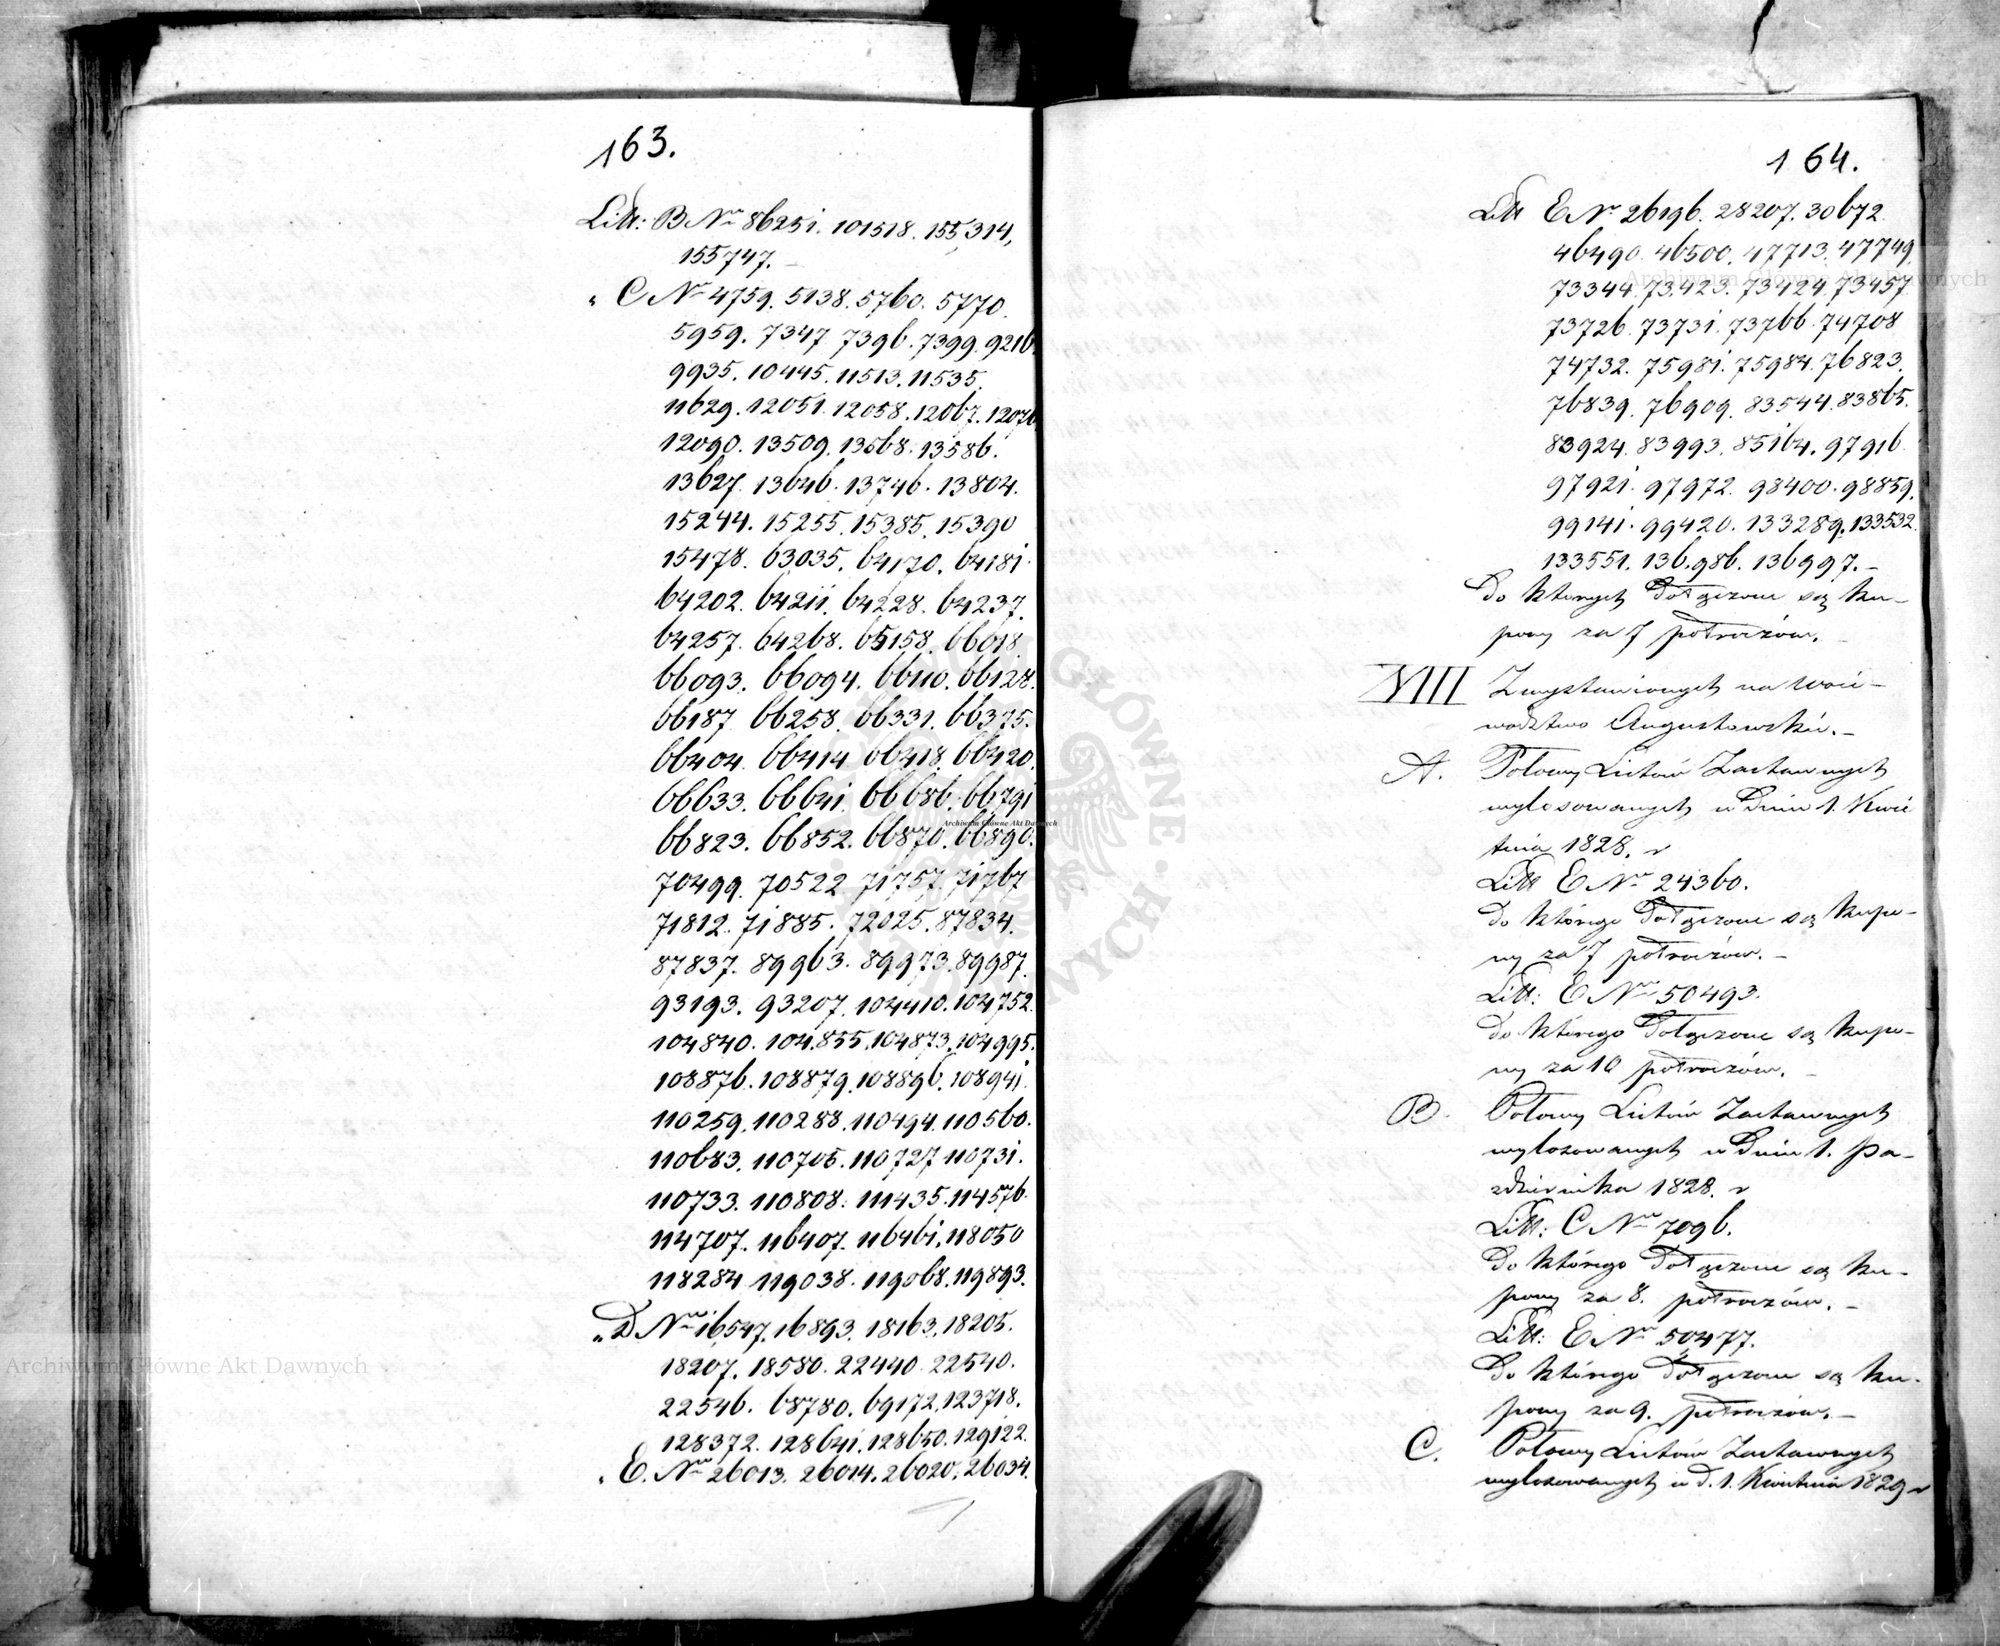 163.
Litt: B Nro 86251. 101518. 155314,
155747. –
" C Nro 4759. 5138. 5760. 5770.
5959. 7347. 7396. 7399. 9216.
9935. 10445. 11513. 11535.
11629. 12051. 12058. 12067. 12076.
12090. 13509. 13568. 13586.
13627. 13646. 13746. 13804.
15244. 15255. 15385. 15390
15478. 63035. 64170. 64181.
64202. 64211. 64228. 64237.
64257. 64268. 65158. 66018.
66093. 66094. 66110. 66128.
66187. 66258. 66331. 66375.
66404. 66414. 66418. 66420.
66633. 66641. 66686. 66791
66823. 66852. 66870. 66890.
70499. 70522. 71757. 71767
71812. 71885. 72025. 87834.
87837. 89963. 89973. 89987.
93193. 93207. 104410. 104752.
104840. 104855. 104873. 104995.
108876. 108879. 108896. 108941.
110259. 110288. 110494. 110560.
110683. 110705. 110727 110731.
110733. 110808. 111435. 114576.
114707. 116407. 116461. 118050
118284. 119038. 119068. 119893.
" D Nro 16547. 16893. 18163. 18205.
18207. 18580. 22440. 22540.
22546. 68780. 69172. 123718.
128372. 128641. 128650. 129122.
" E. Nro 26013. 26014. 26020. 26034.
164.
Litt E Nro 26196. 28207. 30672.
46490. 46500. 47713. 47749.
73344. 73423. 73424. 73457
73726. 73731. 73766. 74708
74732. 75981. 75984. 76823.
76839. 76909. 83544. 83865.
83924. 83993. 85164. 97916
97921. 97972. 98400. 98859.
99141. 99420. 133289. 133532.
133551. 136.986. 136997. –
Do których dołączone są ku–
pony za 7 półroczów. –
XVIII Z wystawionych na Woie–
wodztwo Augustowskie. –
A. Połowy Listów Zastawnych
wylosowanych w Dniu 1. Kwie
tnia 1828. r
Litt E Nro 24360.
Do którego dołączone są kupo–
ny za 7 półroczów. –
Litt: E Nro 50493.
Do którego dołączone są kupo–
ny za 10 półroczów. –
B. Połowy Listów Zastawnych
wylosowanych w Dniu 1. Pa–
zdziernika 1828. r
Litt: C Nro 7096.
Do którego dołączone są ku–
pony za 8. półroczów. –
Litt: E Nro 50477.
Do którego dołączone są ku–
pony za 9. półroczów. –
C. Połowy Listów Zastawnych
wylosowanych w D. 1. Kwietnia 1829 r
Archiwum Główne Akt Dawnych
Archiwum Główne Akt Dawnych
Archiwum Główne Akt Dawnych